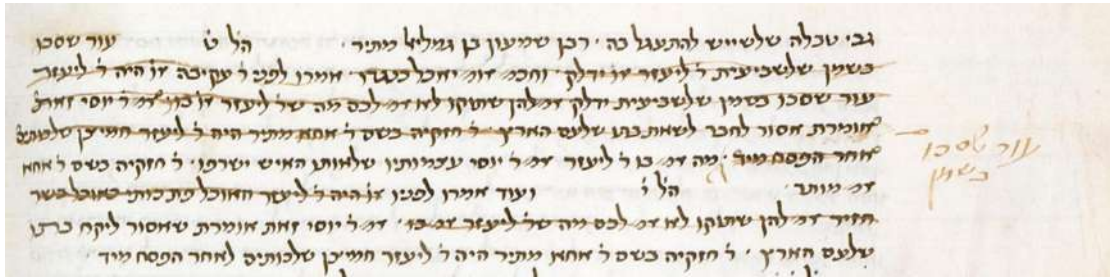 גבי טבלה שלשייש להתעגל בה · רבן שמעון בן גמליאל מתיר · הל ט עור שסכו
בשמן שלשביעית ר ליעזר או ידלק · וחכמ אומ יאכל כנגדו · אמרו לפני ר עקיבה או היה ר ליעזר
עור שסכו בשמן שלשביעית ידלק אמ להן שותקו לא אמ לכם מה שר ליעזר או בו · אמ ר יוסי זאת
אומרת אסור לחבר לשאת בת שלעם הארץ · ר חזקיה בשם ר אחא מתיר היה ר ליעזר חמיצן שלכותים
אחר הפסח מיד · מה אמ בו ר ליעזר אמ ר יוסי עצמותיו שלאותו האיש ישרפו · ר חזקיה בשם ר אחא
אמ מותר · הל י ועוד אמרו לפניו או היה ר ליעזר האוכל פת כותי כאוכל בשר
חזיר אמ להן שותקו לא אמ לכם מה שר ליעזר אמ בו · אמ ר יוסי זאת אומרת שאסור ליקח בת
שלעם הארץ · ר חזקיה בשם ר אחא מתיר היה ר ליעזר חמיצן שלכותים לאחר הפסח מיד
עור שסכו
בשמן